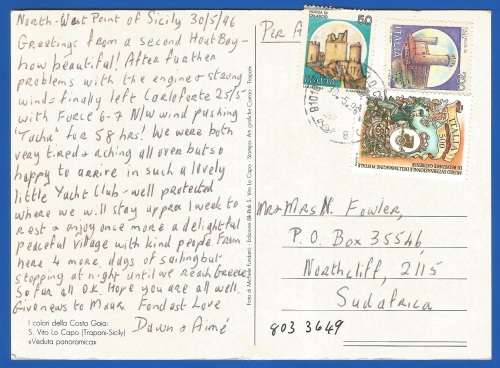 North-West Point of Sicily 30/5/96
Greetings from a second Hout Bay-
how beautiful! After further
problems with the engine & strong
winds finally left Carloforte 25/5
with FORCE 6-7 N/W wind pushing
for 58 hrs! We were both
very tired & aching all over but so
happy to arrive in such a lovely
little Yacht Club - well protected
where we will stay approx 1 week to
rest & enjoy once more a delightful
peaceful village with kind people. From
here 4 more days of sailing but
stopping at night until we reach Greece
So far all O.K. Hope you are all well.
Give news to Maura Fondest Love
Dawn & Aimé
I colori della Costa Gaia:
S. Vito Lo Capo (Trapani-Sicily)
«Veduta panoramica»
Foto di Michele Fundarò
Edizioni
S. Vito Lo Capo
Trapani
Per A
50
ITALIA
ITALIA
500
Mr & Mrs N. Fowler,
P.O. Box 35546
Northcliff, 2115
Sudafrica
803 3649